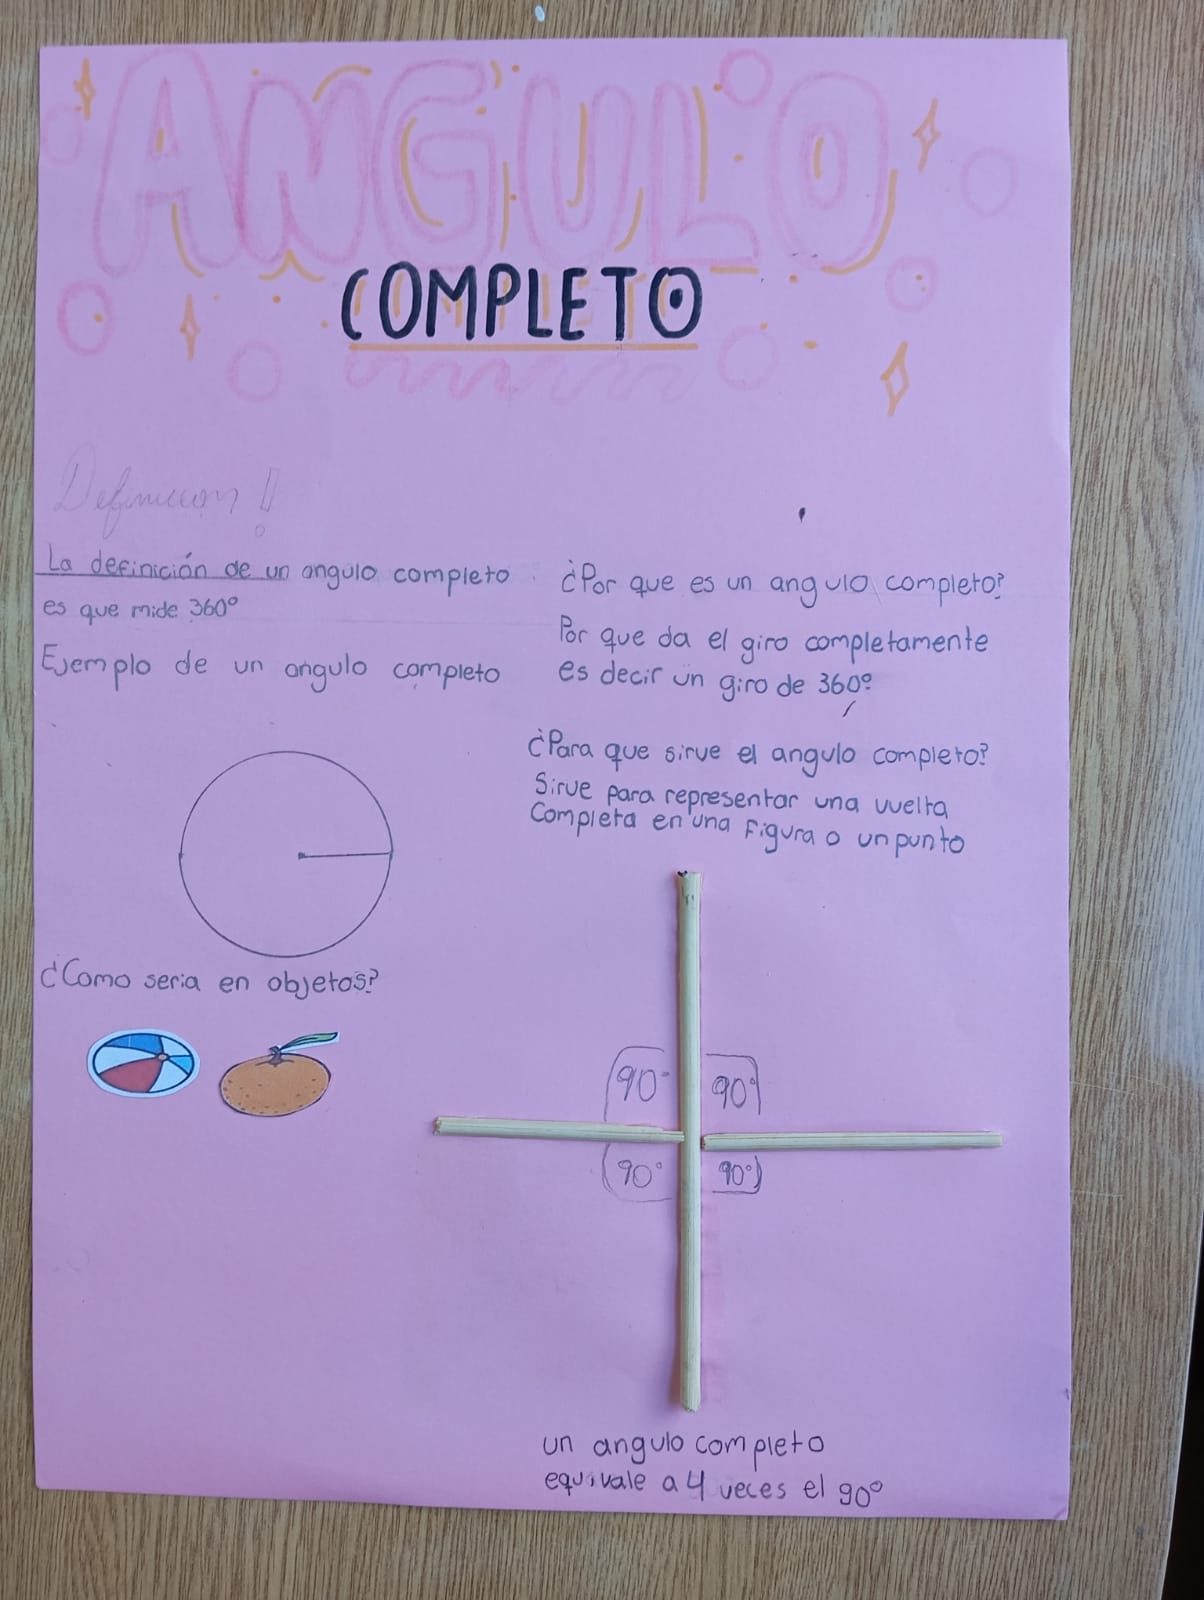 ANGULO
COMPLETO
Definicion!
La definición de un angulo completo
es que mide 360°
Ejemplo de un angulo completo
¿Como seria en objetos?
¿Por que es un angulo completo?
Por que da el giro completamente
es decir un giro de 360°
¿Para que sirve el angulo completo?
Sirve para representar una vuelta
Completa en una figura o un punto
90° 90°
90° 90°
un angulo completo
equivale a 4 veces el 90°